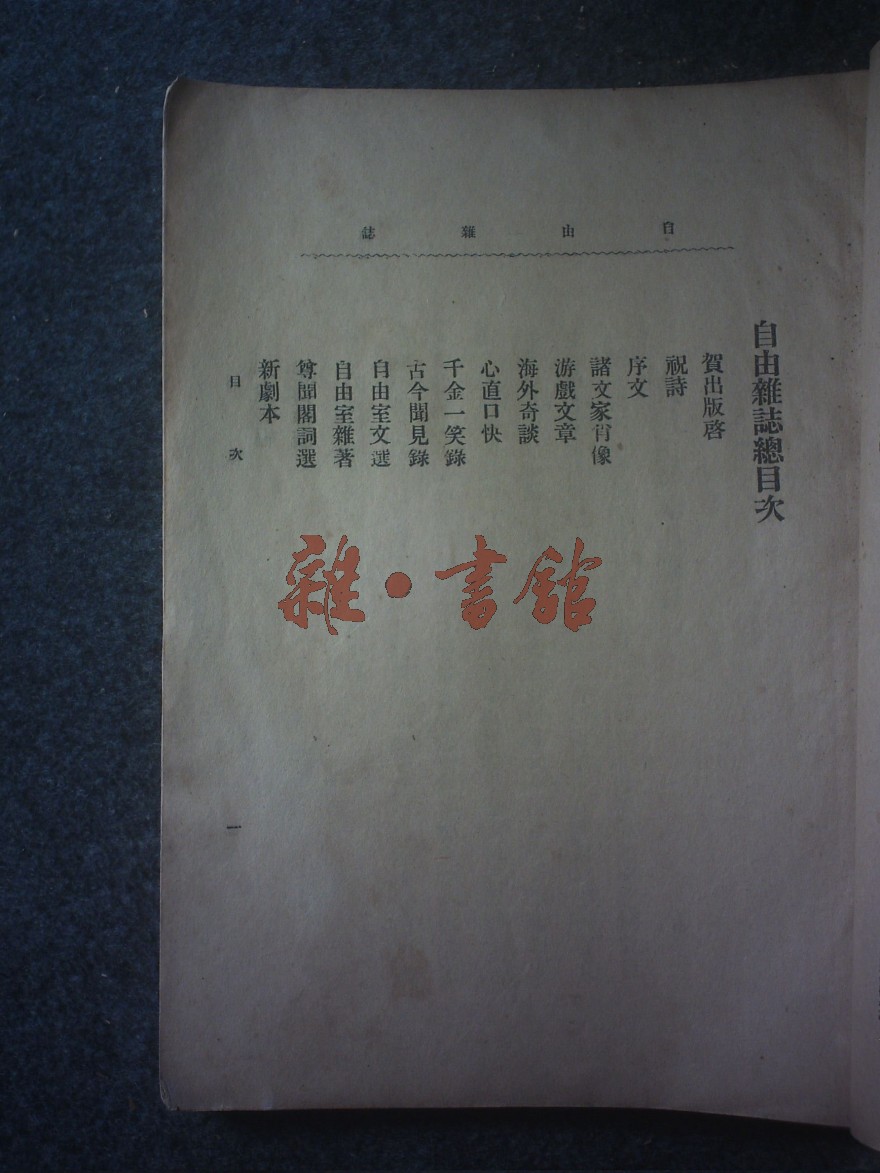 自由雜誌
自由雜誌總目次
賀出版啓
祝詩
序文
諸文家肖像
游戲文章
海外奇談
心直口快
千金一笑錄
古今聞見錄
自由室文選
自由室雜著
尊聞閣詞選
新劇本
目次
一
雜·書館